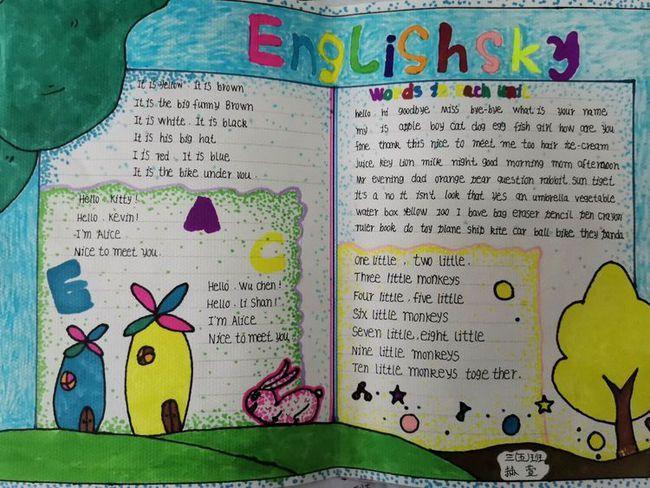 EngLiSh Sky
It is yellow. It is brown
It is the big funny Brown
It is white. It is black
It is his big hat
I is red. It is blue
It is the bike under you.
Hello. Kitty!
Hello. Kevin!
I'm Alice
Nice to meet you.
A
C
E
Hello. Wu chen!
Hello. Li Shan!
I'm Alice
Nice to meet you
Words In each unit
hello hi goodbye Miss bye-bye what is your name
my is apple boy cat dog egg fish girl how are you
fine thank this nice to meet me too hair ice-cream
juice key lion milk night good morning mom afternoon
Mr evening dad orange pear question rabbit sun tiget
it's a no it isn't look that yes an umbrella vegetable
water box yellow zoo I have bag eraser pencil pen crayon
ruler book do toy plane ship kite car ball bike they panda
One little. two little.
Three little monkeys
Four little. five little
Six little monkeys
Seven little. eight little
Nine little monkeys
Ten little monkeys together.
三(五)班